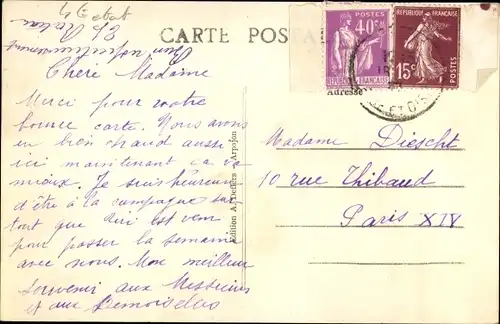 CARTE POSTALE
Chère Madame
Merci pour votre
bonne carte. Nous avons
eu bien chaud aussi
ici maintenant ça va
mieux. Je suis heureuse
d'être à la campagne sur
tout que est venu
pour passer la semaine
avec nous. Mon meilleur
souvenir aux Messieurs
et aux Demoiselles
Edition A. Arpajon
POSTES
40c
RÉPUBLIQUE FRANÇAISE
RÉPUBLIQUE FRANÇAISE
15c
POSTES
Adresse
Madame Diescht
10 rue Thibaud
Paris XIV